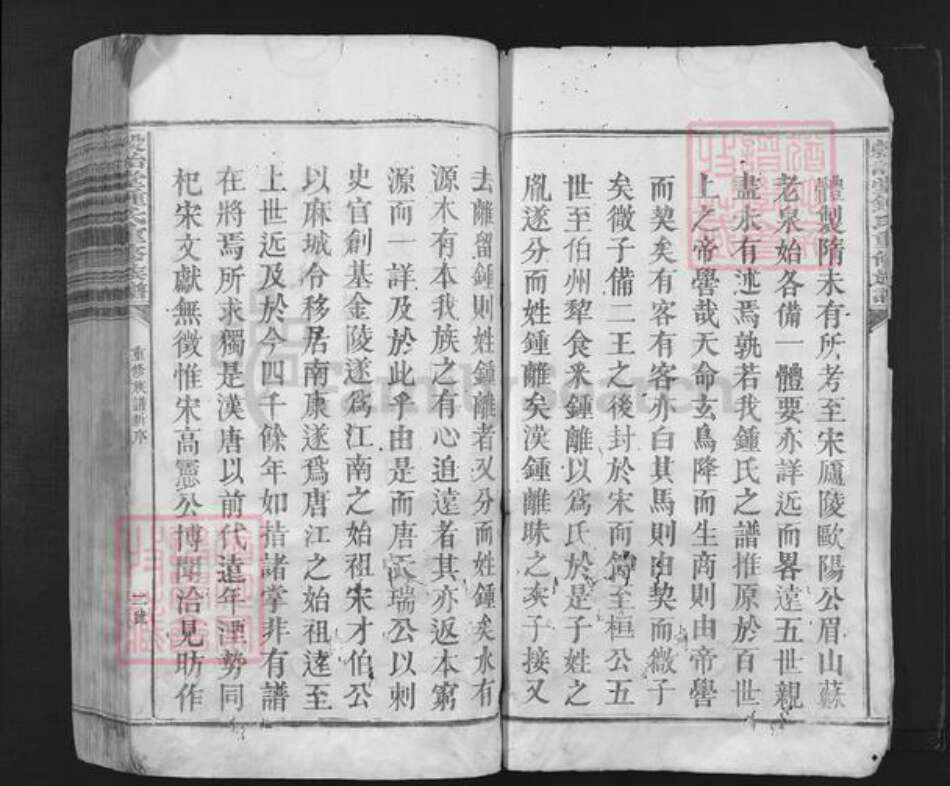 體製隋未有所考至宋廬陵歐陽公眉山蘇
老泉始各備一體要亦詳近而畧遠五世親
盡永有述焉孰若我鍾氏之譜推原於百世
上之帝嚳哉天命玄鳥降而生商則由帝嚳
而契矣有客有客亦白其馬則由契而微子
矣微子備二王之後封於宋而至桓公五
世至伯州犂食釆鍾離以為氏於是子姓之
胤遂分而姓鍾離矣漢鍾離昧之次子接又
去離留鍾則姓鍾離者又分而姓鍾矣水有
源木有本我族之有心追遠者其亦返本窮
源而一詳及於此乎由是而唐瑞公以刺
史官創基金陵遂為江南之始祖宋才伯公
以麻城令移居南康遂爲唐江之始祖逹至
上世近及於今四千餘年如指諸掌非有譜
在將焉所求獨是漢唐以前代遠年湮勢同
杞宋文獻無徵惟宋高公博聞洽見昉作
重修族譜新序
二號
FamilySearch